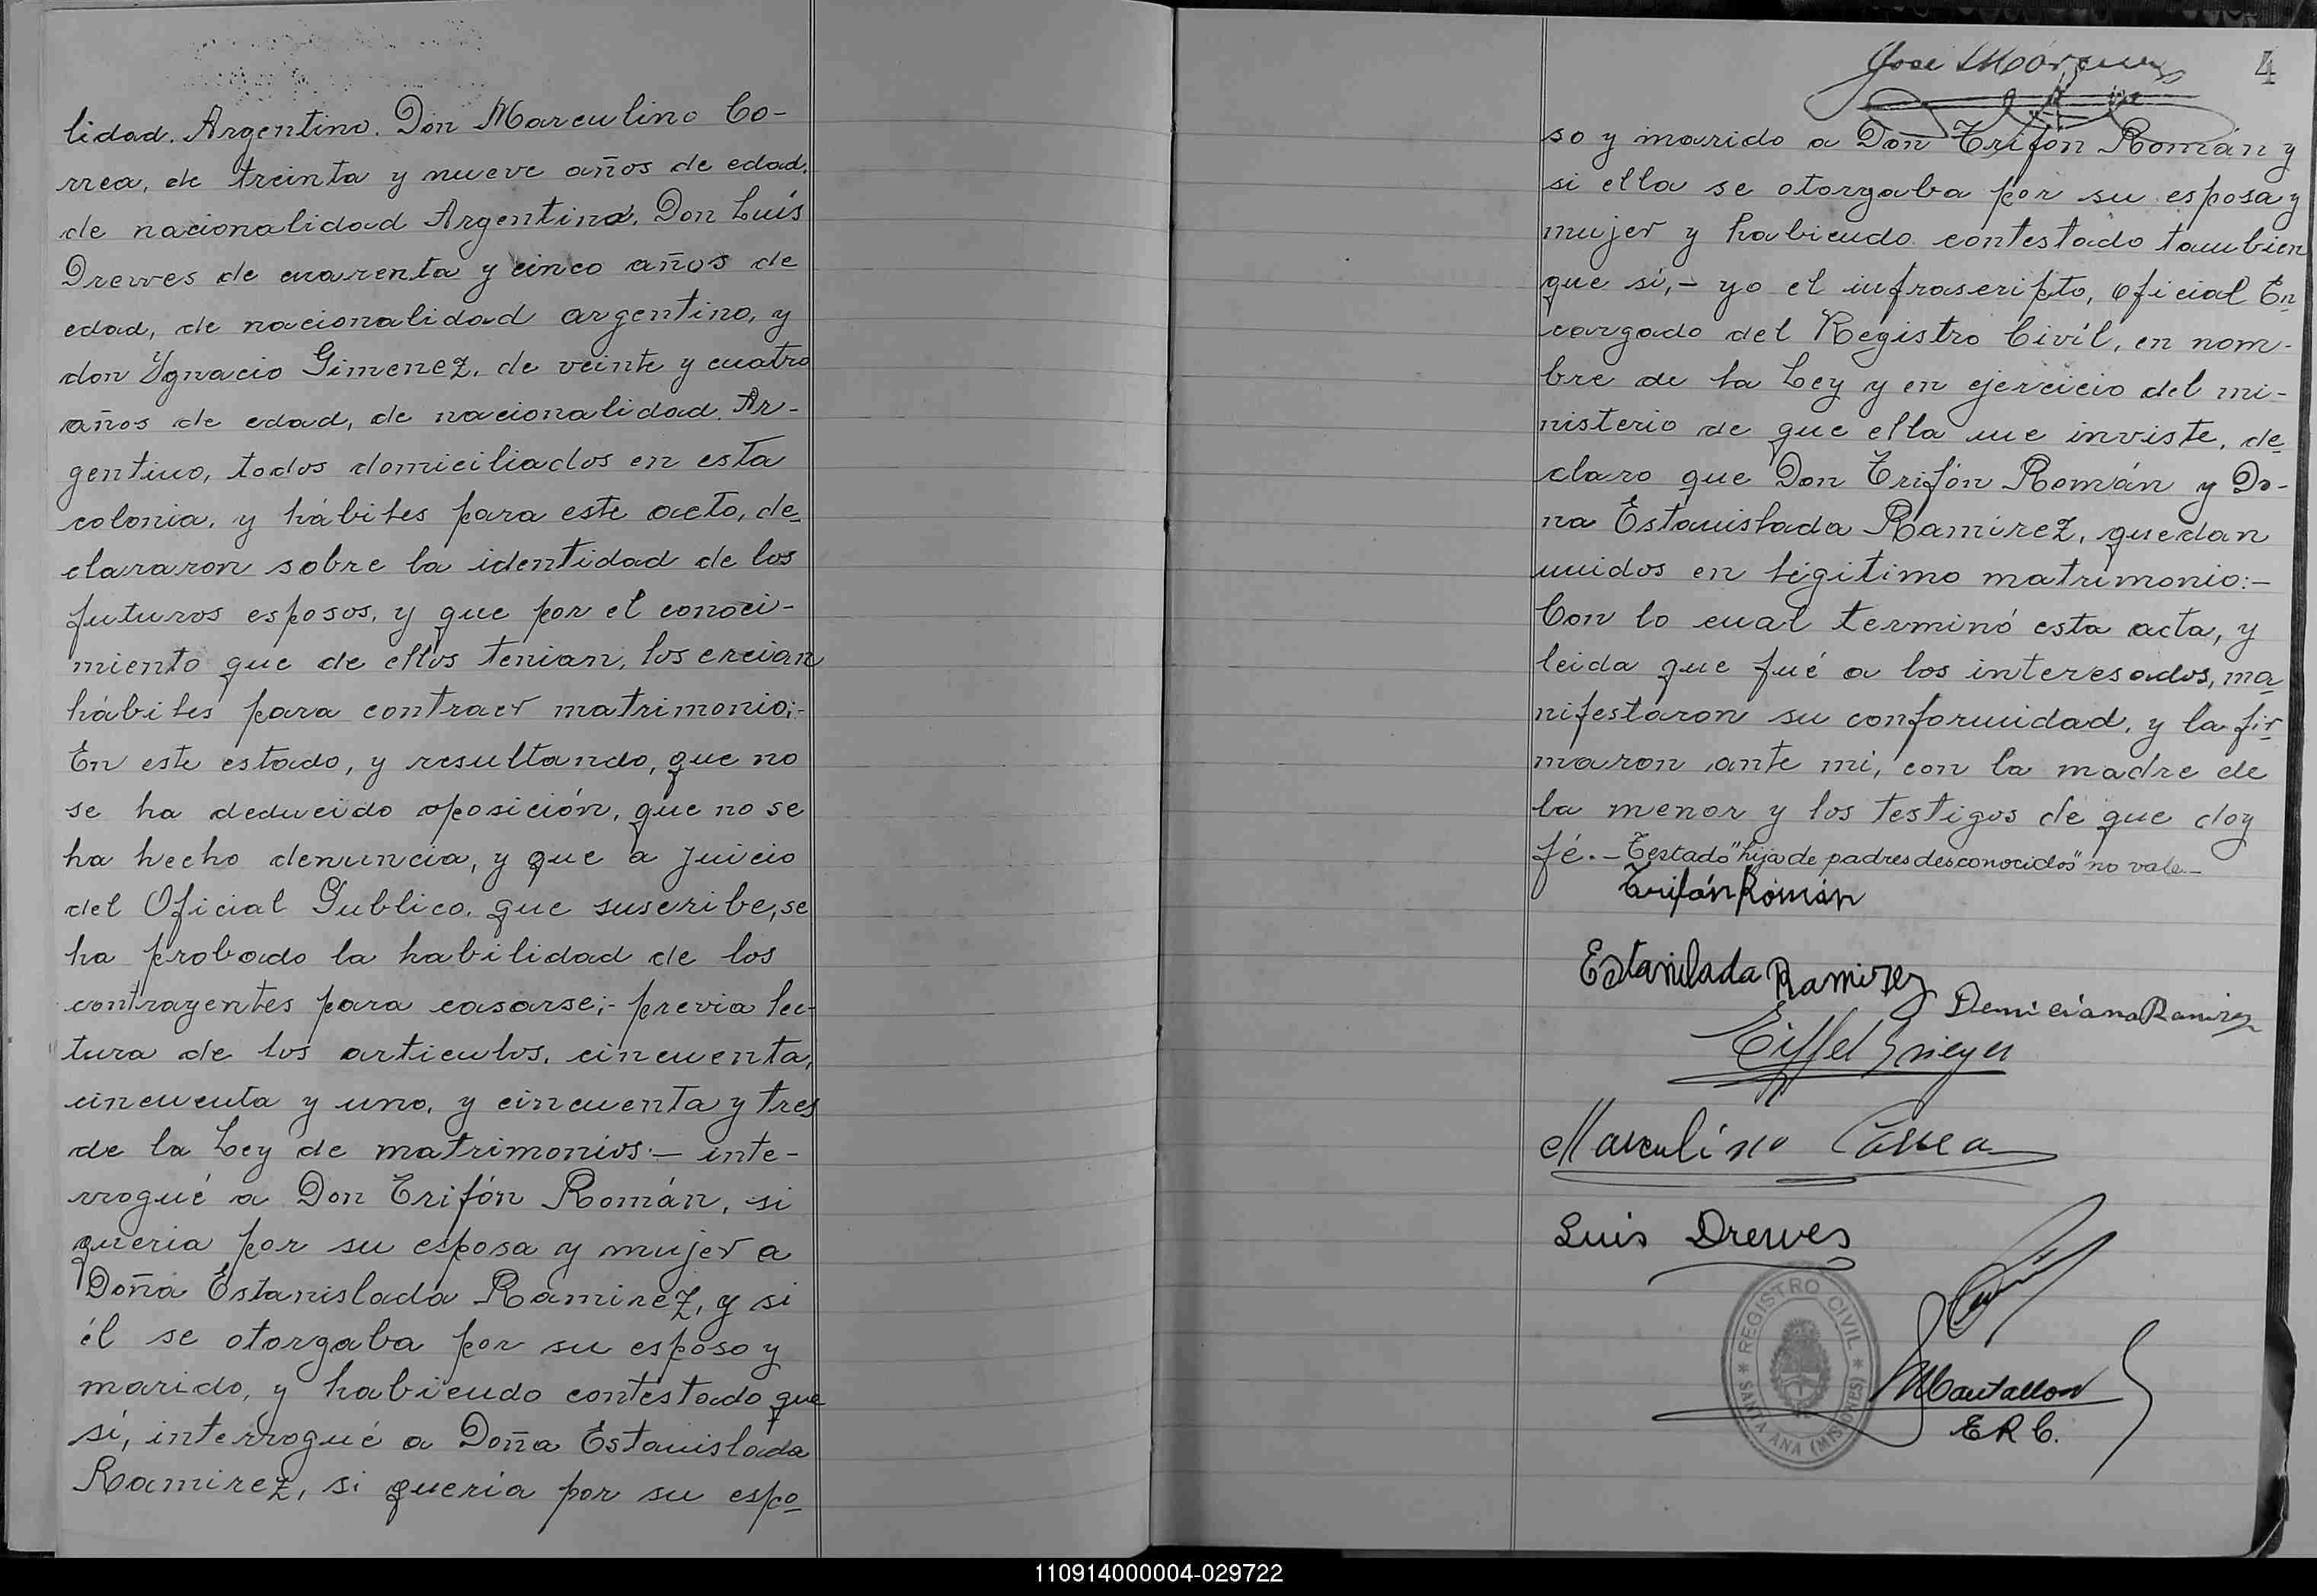 lidad. Argentino. Don Marculino Co-
rrea, de treinta y nueve años de edad.
de nacionalidad Argentino. Don Luís
Drewes de cuarenta y cinco años de
edad, de nacionalidad argentino, y
don Ygnacio Gimenez, de veinte y cuatro
años de edad, de nacionalidad. Ar-
gentino, todos domiciliados en esta
colonia, y hábiles para este acto, de-
clararon sobre la identidad de los
futuros esposos, y que por el conoci-
miento que de ellos tenian, los creian
hábiles para contraer matrimonio;-
En este estado, y resultando, que no
se ha deducido oposición, que no se
ha hecho denuncia, y que a juicio
del Oficial Publico, que suscribe, se
ha probado la habilidad de los
contrayentes para casarse;- previa lec-
tura de los articulos, cincuenta,
cincuenta y uno, y cincuenta y tres
de la Ley de matrimonios.- inte-
rrogué a Don Trifón Román, si
queria por su esposa y mujer a
Doña Estanislada Ramirez, y si
él se otorgaba por su esposo y
marido, y habiendo contestado que
sí, interrogué a Doña Estanislada
Ramirez, si queria por su espo-
4
so y marido a Don Trifón Román y
si ella se otorgaba por su esposa y
mujer y habiendo contestado tambien
que sí,- yo el infrascripto, oficial En-
cargado del Registro Civíl, en nom-
bre de la Ley y en ejercicio del mi-
nisterio de que ella me inviste, de-
claro que Don Trifón Román y Do-
na Estanislada Ramirez, quedan
unidos en légitimo matrimonio:-
Con lo cual terminó esta acta, y
leida que fué a los interesados, ma-
nifestaron su conformidad, y la fir-
maron ante mi, con la madre de
la menor y los testigos de que doy
fé.- Testado "hija de padres desconocidos" no vale.-
Trifón Román
Estanilada Ramirez
Demiciana Ramirez
Eiffel
Marculino Correa
Luis Drewes
REGISTRO CIVIL
SANTA ANA (MISIONES)
E R C.
110914000004-029722